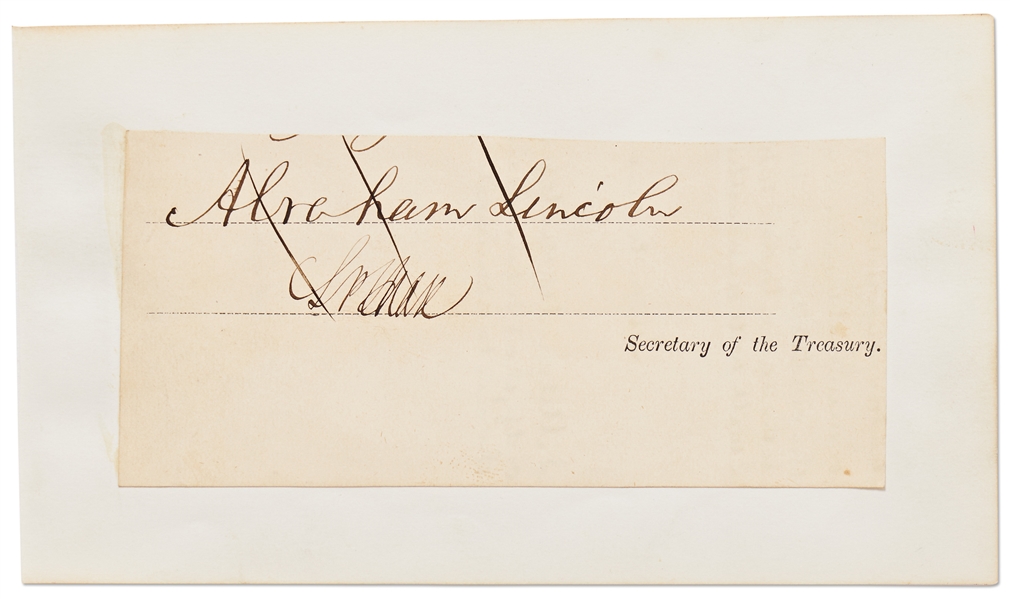 Abraham Lincoln
S P Chase
Secretary of the Treasury.